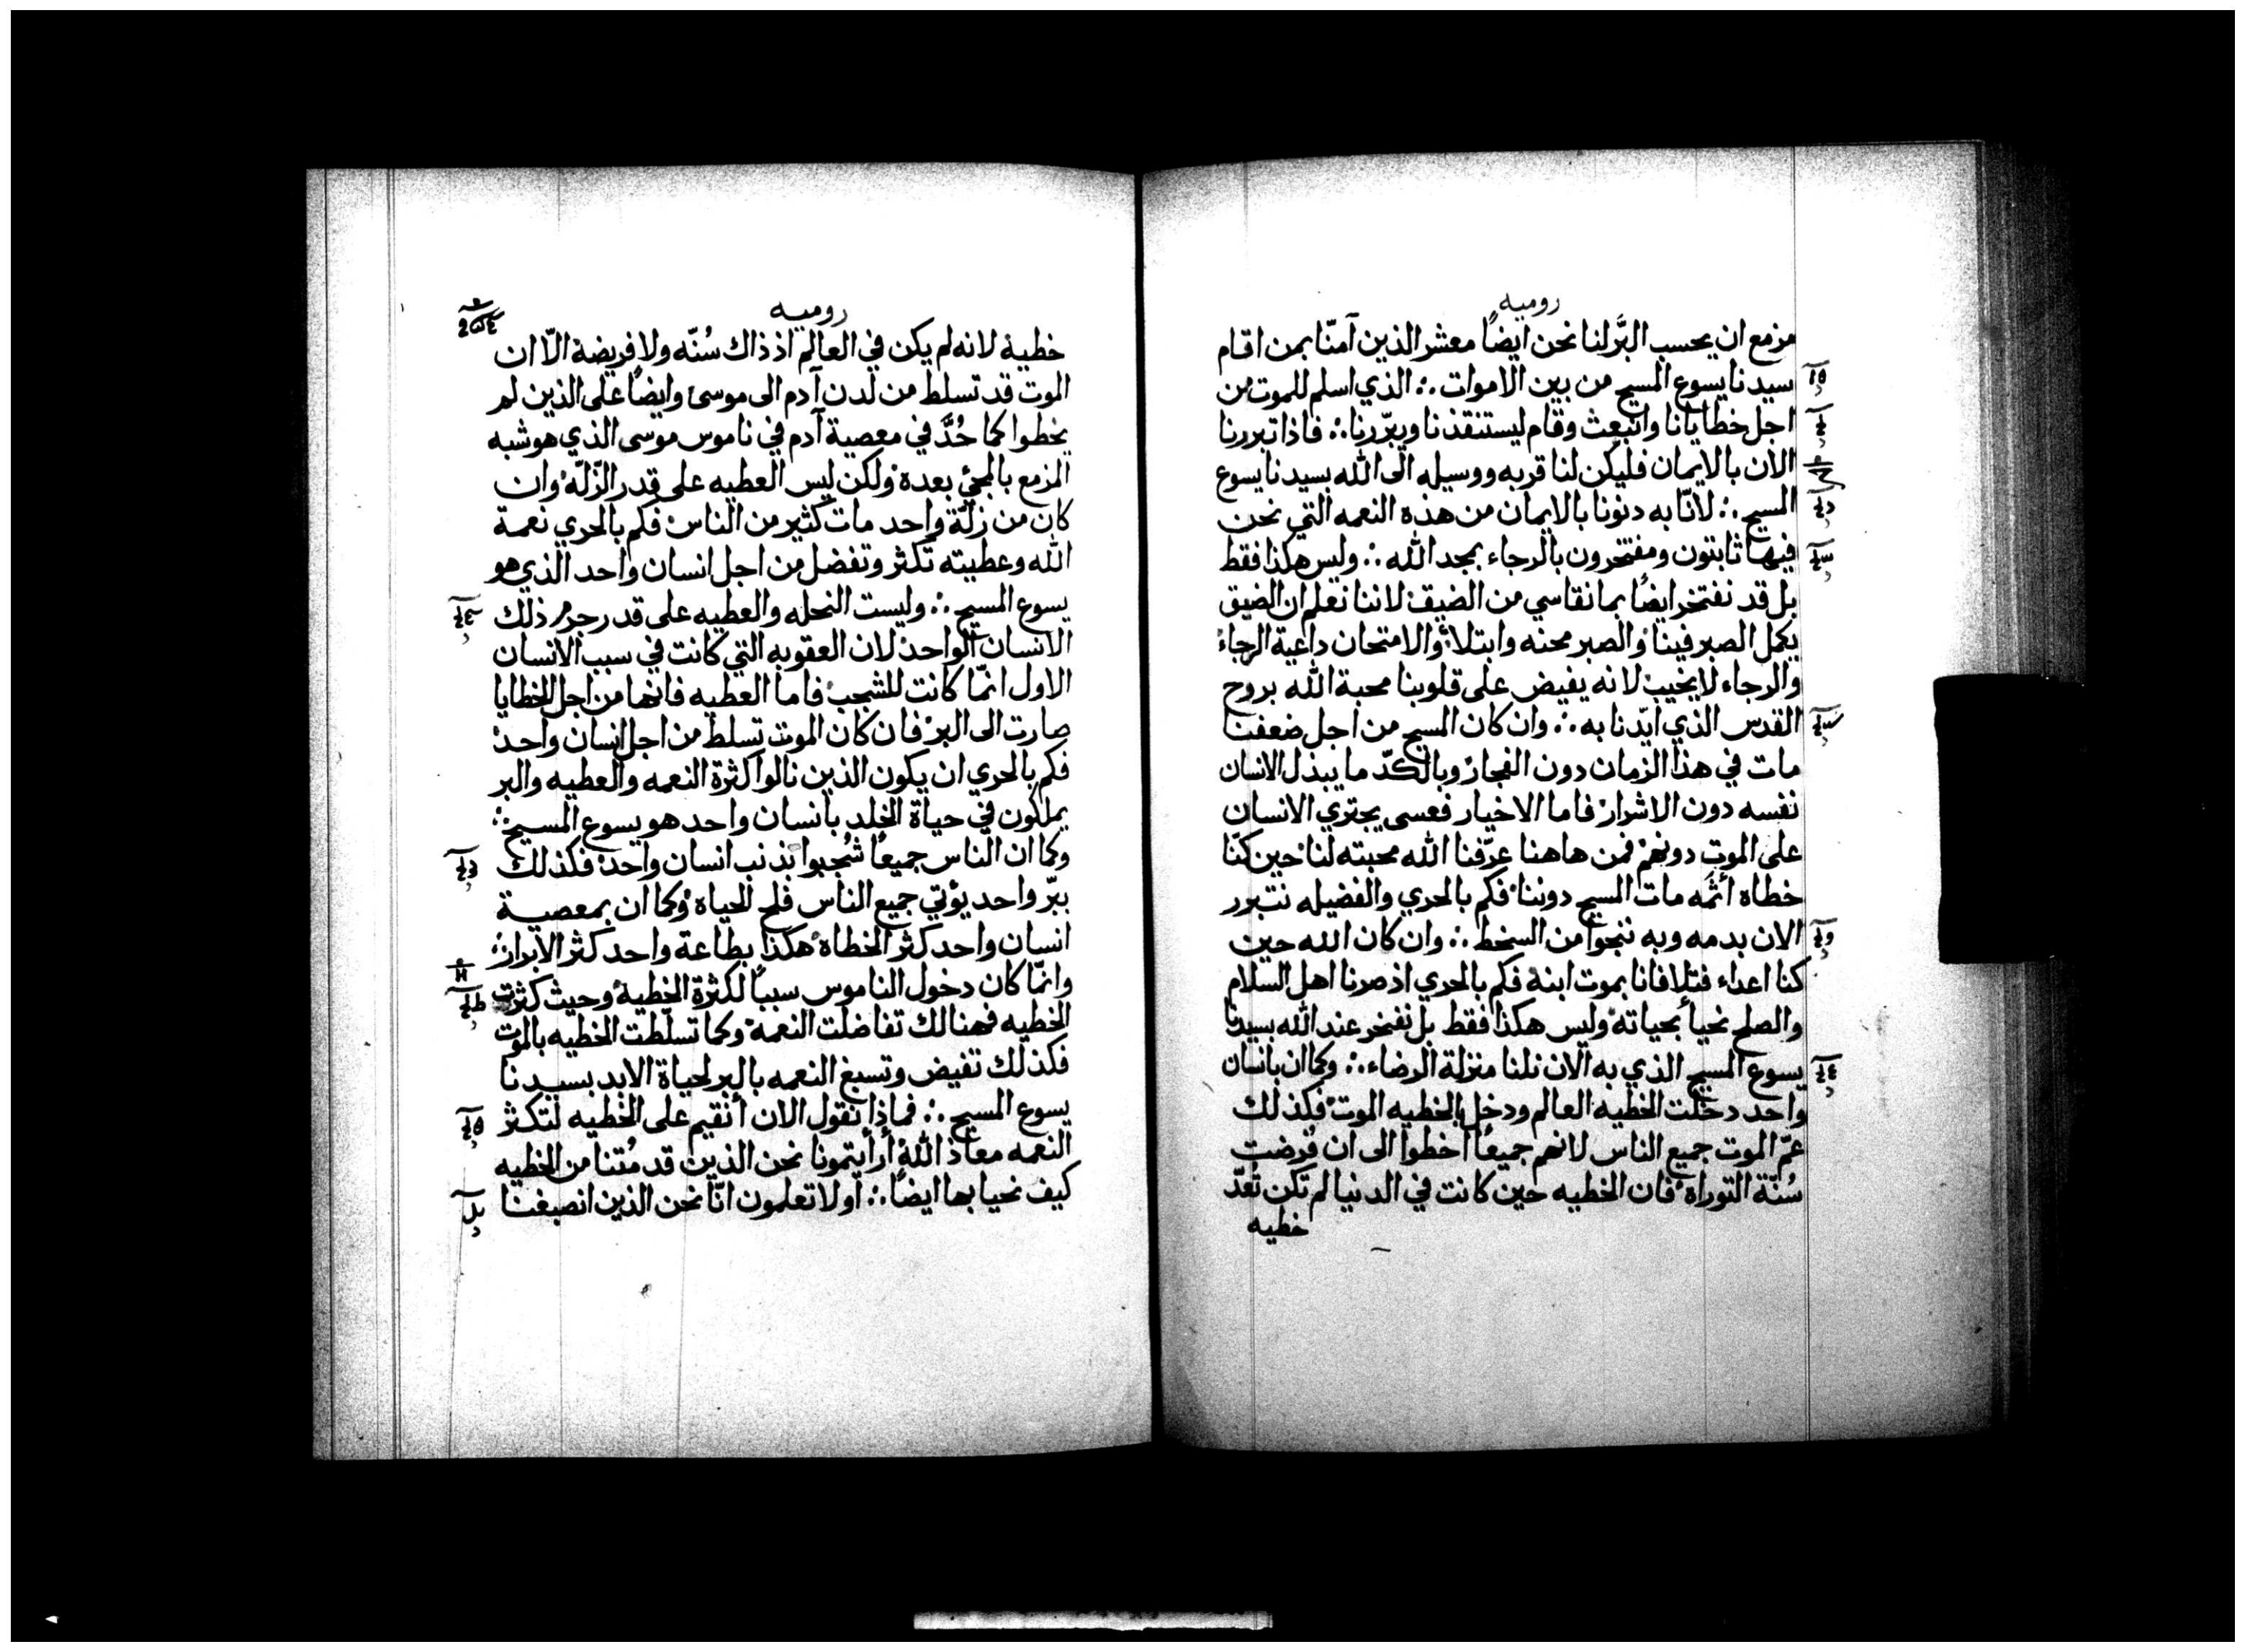 روميه
مزمع ان يحسب البرَّ لنا نحن ايضاً معشر الذين آمنّا بمن اقام
سيدنا يسوع المسيح من بين الاموات ∴ الذي اسلم للموت من
اجل خطايانا وانبعث وقام ليستنقذنا ويبّررنا ∴ فاذا تبررنا
الان بالايمان فليكن لنا قربه ووسيله الى الله بسيدنا يسوع
المسيح ∴ لانّا به دنونا بالايمان من هذه النعمه التي نحن
فيها ثابتون ومفتخرون بالرجاء بمجد الله ∴ وليس هكذا فقط
بل قد نفتخر ايضاً بما نقاسي من الضيق لاننا نعلم ان الضيق
يكمل الصبر فينا والصبر محنه وابتلاً والامتحان داعية الرجاء
والرجاء لا يخيب لانه يفيض على قلوبنا محبة الله بروح
القدس الذي ايّدنا به ∴ وان كان المسيح من اجل ضعفنا
مات في هذا الزمان دون الفجار وبالكدّ ما يبذل الانسان
نفسه دون الاشرار فاما الاخيار فعسى يجتري الانسان
على الموت دونهم فمن هاهنا عرّفنا الله محبته لنا حين كنّا
خطاه أثمَه مات المسيح دوننا فكم بالحري والفضيله نتبرر
الان بدمه وبه ننجوا من السخط ∴ وان كان الله حين
كنا اعداء فتلافانا بموت ابنة فكم بالحري اذ صرنا اهل السلام
والصلح نحيأ بحياته وليس هكذا فقط بل نفتخر عند الله بسيدنا
يسوع المسيح الذي به الان نلنا منزلة الرضاء ∴ وكما ان بانسان
واحد دخلت الخطيه العالم ودخل بالخطيه الموت فكذلك
عمّ الموت جميع الناس لانهم جميعاً اخطوا الى ان فرضت
سُنّة التوراة فان الخطيه حين كانت في الدنيا لم تكن تُعدّ
خطيه
روميه
خطية لانه لم يكن في العالم اذ ذاك سُنّه ولا فريضة الّا ان
الموت قد تسلط من لدن آدم الى موسى وايضاً على الذين لم
يخطوا كما حُدَّ في معصية آدم في ناموس موسى الذي هو شبه
المزمع بالمجئ بعدة ولكن ليس العطيه على قدر الزّلّه وان
كان من زلّة واحد مات كثير من الناس فكم بالحري نعمة
الله وعطيته تكثر وتفضل من اجل انسان واحد الذي هو
يسوع المسيح ∴ وليست النحله والعطيه على قدر جرم ذلك
الانسان الواحد لان العقوبه التي كانت في سبب الانسان
الاول انّما كانت للشجب فاما العطيه فانها من اجل الخطايا
صارت الى البر فان كان الموت تسلط من اجل انسان واحد
فكم بالحري ان يكون الذين نالوا كثرة النعمه والعطيه والبر
يملكون في حياة الخلد بانسان واحد هو يسوع المسيح ∴
وكما ان الناس جميعاً شُجبوا بذنب انسان واحد فكذلك
ببّر واحد يؤتي جميع الناس فلح الحياة وكما ان بمعصية
انسان واحد كثر الخطاه هكذا بطاعة واحد كثر الابرار ∴
وانّما كان دخول الناموس سبباً لكثرة الخطية وحيث كثرت
الخطيه فهنالك تفاضلت النعمه وكما تسلّطت الخطيه بالموت
فكذلك تفيض وتسبغ النعمه بالبر لحياة الابد بسيدنا
يسوع المسيح ∴ فماذا نقول الان أنقيم على الخطيه لتكثر
النعمه معاذ الله أرأيتمونا نحن الذين قد مُتنا من الخطيه
كيف نحيا بها ايضاً ∴ أولا تعلمون انّا نحن الذين انصبغنا